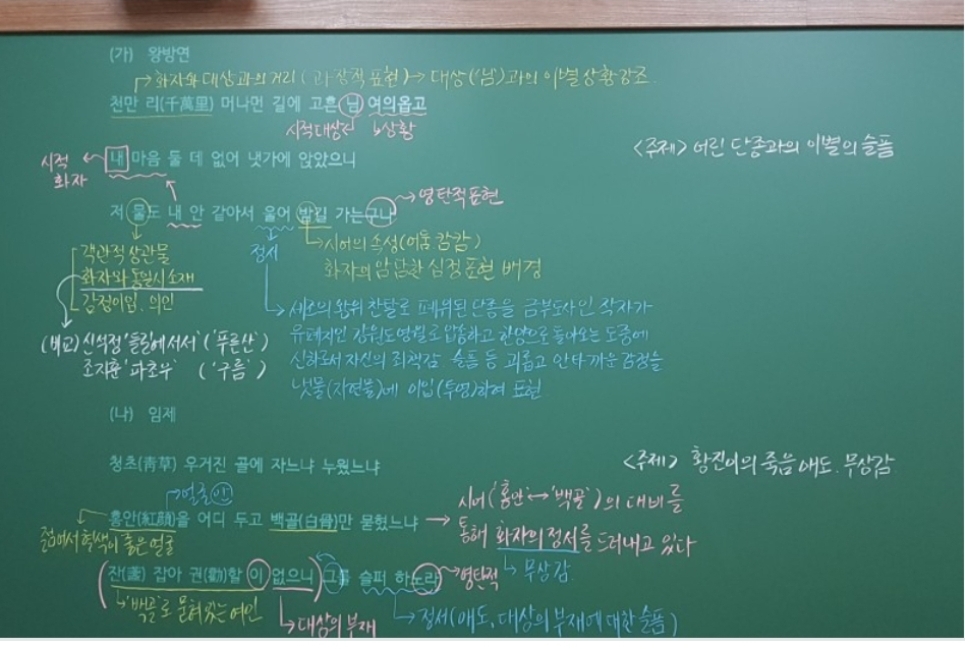 (가) 왕방연
화자와 대상과의 거리 (과장적 표현) → 대상('님')과의 이별상황 강조.
천만 리(千萬里) 머나먼 길에 고흔 님 여의옵고
시적대상 상황
<주제> 어린 단종과의 이별의 슬픔
시적 화자
내 마음 둘 데 없어 냇가에 앉았으니
영탄적표현
저 물도 내 안 같아서 울어 밤길 가는구나
객관적 상관물
화자와 동일시 소재
감정이입, 의인
정서
시어의 속성(어둠. 캄캄)
화자의 암담한 심정 표현 배경
(비교) 신석정 '들길에 서서' ('푸른산')
조지훈 '파초우' ('구름')
세조의 왕위 찬탈로 폐위된 단종을 금부도사인 작자가
유폐지인 강원도 영월로 압송하고 한양으로 돌아오는 도중에
신하로서 자신의 죄책감. 슬픔 등 괴롭고 안타까운 감정을
냇물(자연물)에 이입(투영)하여 표현
(나) 임제
청초(靑草) 우거진 골에 자느냐 누웠느냐
<주제> 황진이의 죽음 애도. 무상감
얼굴 안
홍안(紅顔)을 어디 두고 백골(白骨)만 묻혔느냐
젊어서 혈색이 좋은 얼굴
시어('홍안'↔'백골')의 대비를
통해 화자의 정서를 드러내고 있다
무상감
잔(盞) 잡아 권(勸)할 이 없으니 그를 슬퍼 하노라
영탄적
'백골'로 묻혀있는 여인
대상의 부재
정서(애도, 대상의 부재에 대한 슬픔)